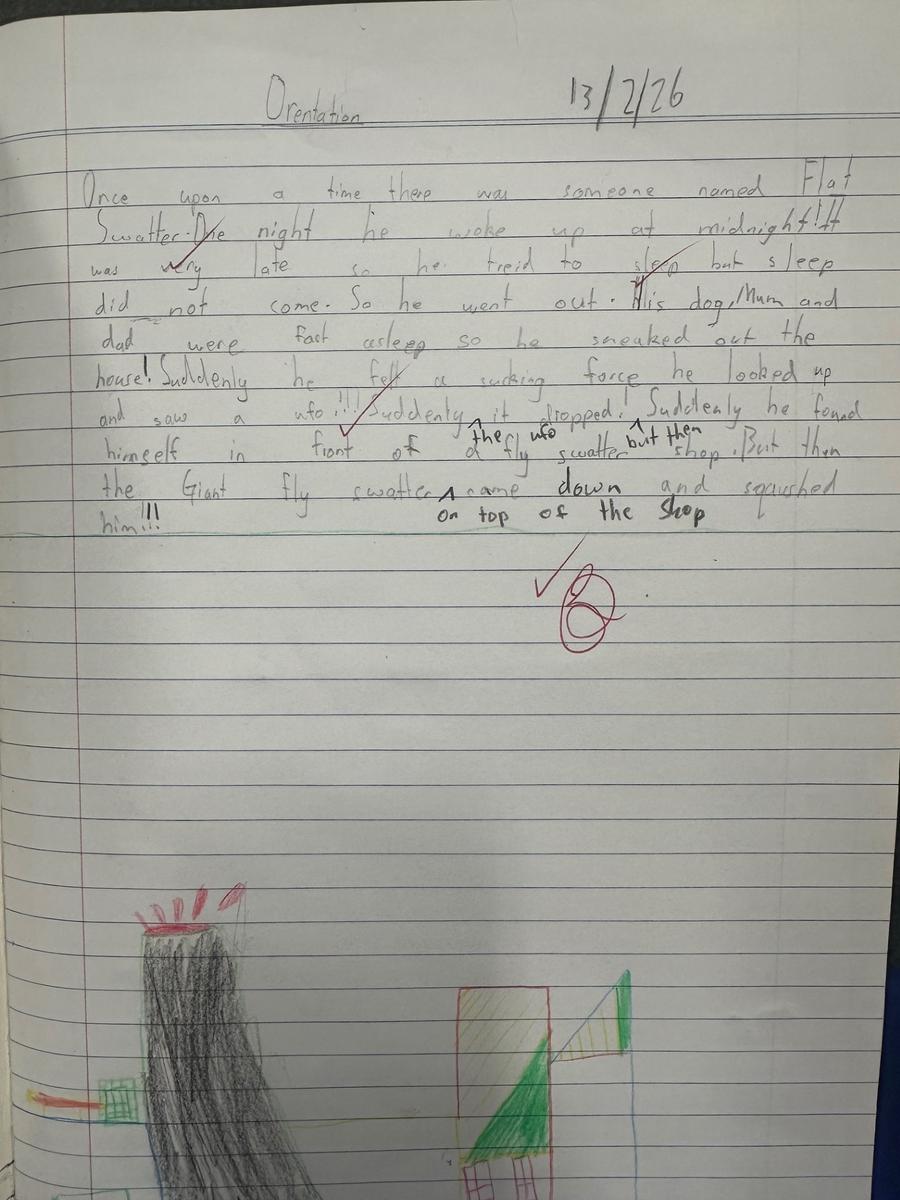 Orentation 13/2/26
Once upon a time there was someone named Flat
Swatter. One night he woke up at midnight! It
was very late so he treid to sleep but sleep
did not come. So he went out. His dog, Mum and
dad were fast asleep so he sneaked out the
house! Suddenly he felt a sucking force he looked up
and saw a ufo!!! Suddenly it dropped! Suddenly he found
the ufo but then
himself in front of a fly swatter shop. But then
the Giant fly swatter came down and sqaushed
on top of the shop
him!!!